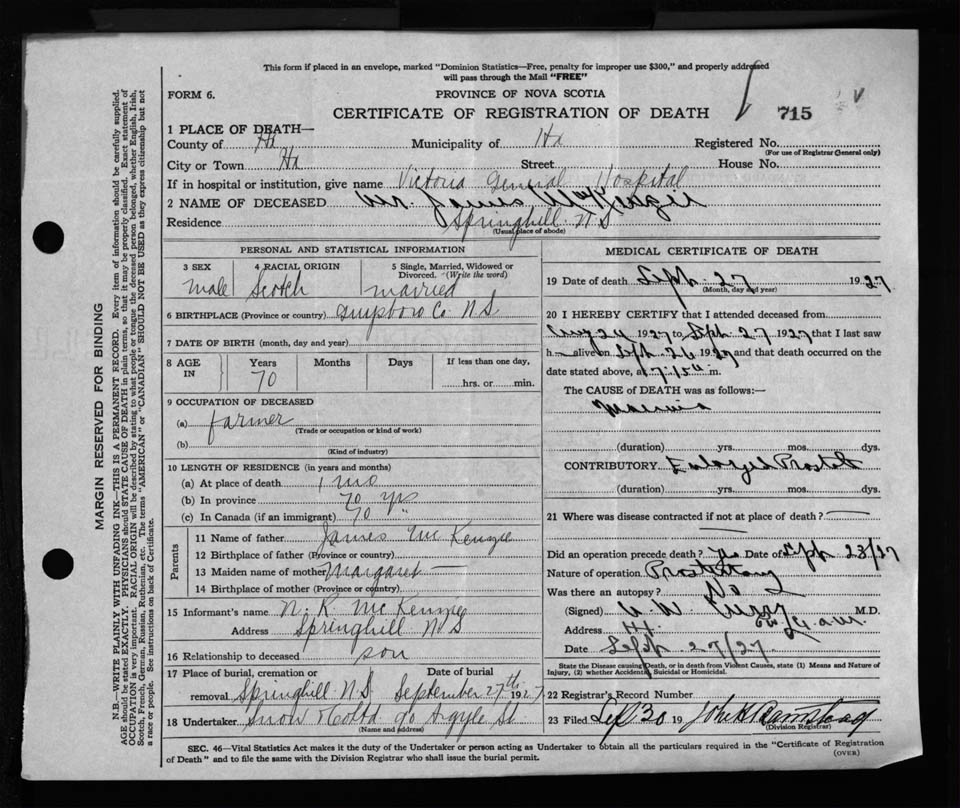 This form if placed in an envelope, marked "Dominion Statistics—Free, penalty for improper use $300," and properly addressed
will pass through the Mail "FREE"
FORM 6.
PROVINCE OF NOVA SCOTIA
CERTIFICATE OF REGISTRATION OF DEATH
715
1 PLACE OF DEATH—
County of Hx Municipality of Hx Registered No.
(For use of Registrar General only)
City or Town Hx Street House No.
If in hospital or institution, give name Victoria General Hospital
2 NAME OF DECEASED Mr. James McKenzie
Residence Springhill N S
(Usual place of abode)
PERSONAL AND STATISTICAL INFORMATION
3 SEX 4 RACIAL ORIGIN 5 Single, Married, Widowed or
Divorced. (Write the word)
male Scotch married
6 BIRTHPLACE (Province or country) Guysboro Co. N S
7 DATE OF BIRTH (month, day and year)
8 AGE IN Years Months Days If less than one day,
70 hrs. or min.
9 OCCUPATION OF DECEASED
(a) farmer
(Trade or occupation or kind of work)
(b)
(Kind of industry)
10 LENGTH OF RESIDENCE (in years and months)
(a) At place of death 1 mo
(b) In province 70 yrs
(c) In Canada (if an immigrant) 70 "
Parents
11 Name of father James McKenzie
12 Birthplace of father (Province or country)
13 Maiden name of mother Margaret —
14 Birthplace of mother (Province or country)
15 Informant's name N. K. McKenzie
Address Springhill N S
16 Relationship to deceased son
17 Place of burial, cremation or Date of burial
removal Springhill N.S. September 27th 1927
18 Undertaker Snow & Co Ltd 90 Argyle St
(Name and address)
MEDICAL CERTIFICATE OF DEATH
19 Date of death Sept. 27 1927
(Month, day and year)
20 I HEREBY CERTIFY that I attended deceased from
Aug 24 1927 to Sept. 27 1927 that I last saw
h— alive on Sept. 26 1927 and that death occurred on the
date stated above, at 7.15 a m.
The CAUSE of DEATH was as follows:—
(duration) yrs. mos. dys.
CONTRIBUTORY Enlarged Prostate
(duration) yrs. mos. dys.
21 Where was disease contracted if not at place of death? —
Did an operation precede death? Yes Date of Sept 23/27
Nature of operation
Was there an autopsy? No
(Signed) M.D.
Address Hx.
Date Sept 27/27
State the Disease causing Death, or in death from Violent Causes, state (1) Means and Nature of
Injury, (2) whether Accidental, Suicidal or Homicidal.
22 Registrar's Record Number
23 Filed Sept 30 19
(Division Registrar)
SEC. 46—Vital Statistics Act makes it the duty of the Undertaker or person acting as Undertaker to obtain all the particulars required in the "Certificate of Registration
of Death" and to file the same with the Division Registrar who shall issue the burial permit.
(OVER)
MARGIN RESERVED FOR BINDING
N.B.—WRITE PLAINLY WITH UNFADING INK—THIS IS A PERMANENT RECORD. Every item of information should be carefully supplied.
AGE should be stated EXACTLY. PHYSICIANS should STATE CAUSE OF DEATH in plain terms, so that it may be properly classified. Exact statement of
OCCUPATION is very important. RACIAL ORIGIN will be described by stating to what people or tongue the deceased person belonged, whether English, Irish,
Scotch, French, German, Russian, Ruthenian, etc. The terms "AMERICAN" or "CANADIAN" SHOULD NOT BE USED as they express citizenship but not
a race or people. See instructions on back of Certificate.